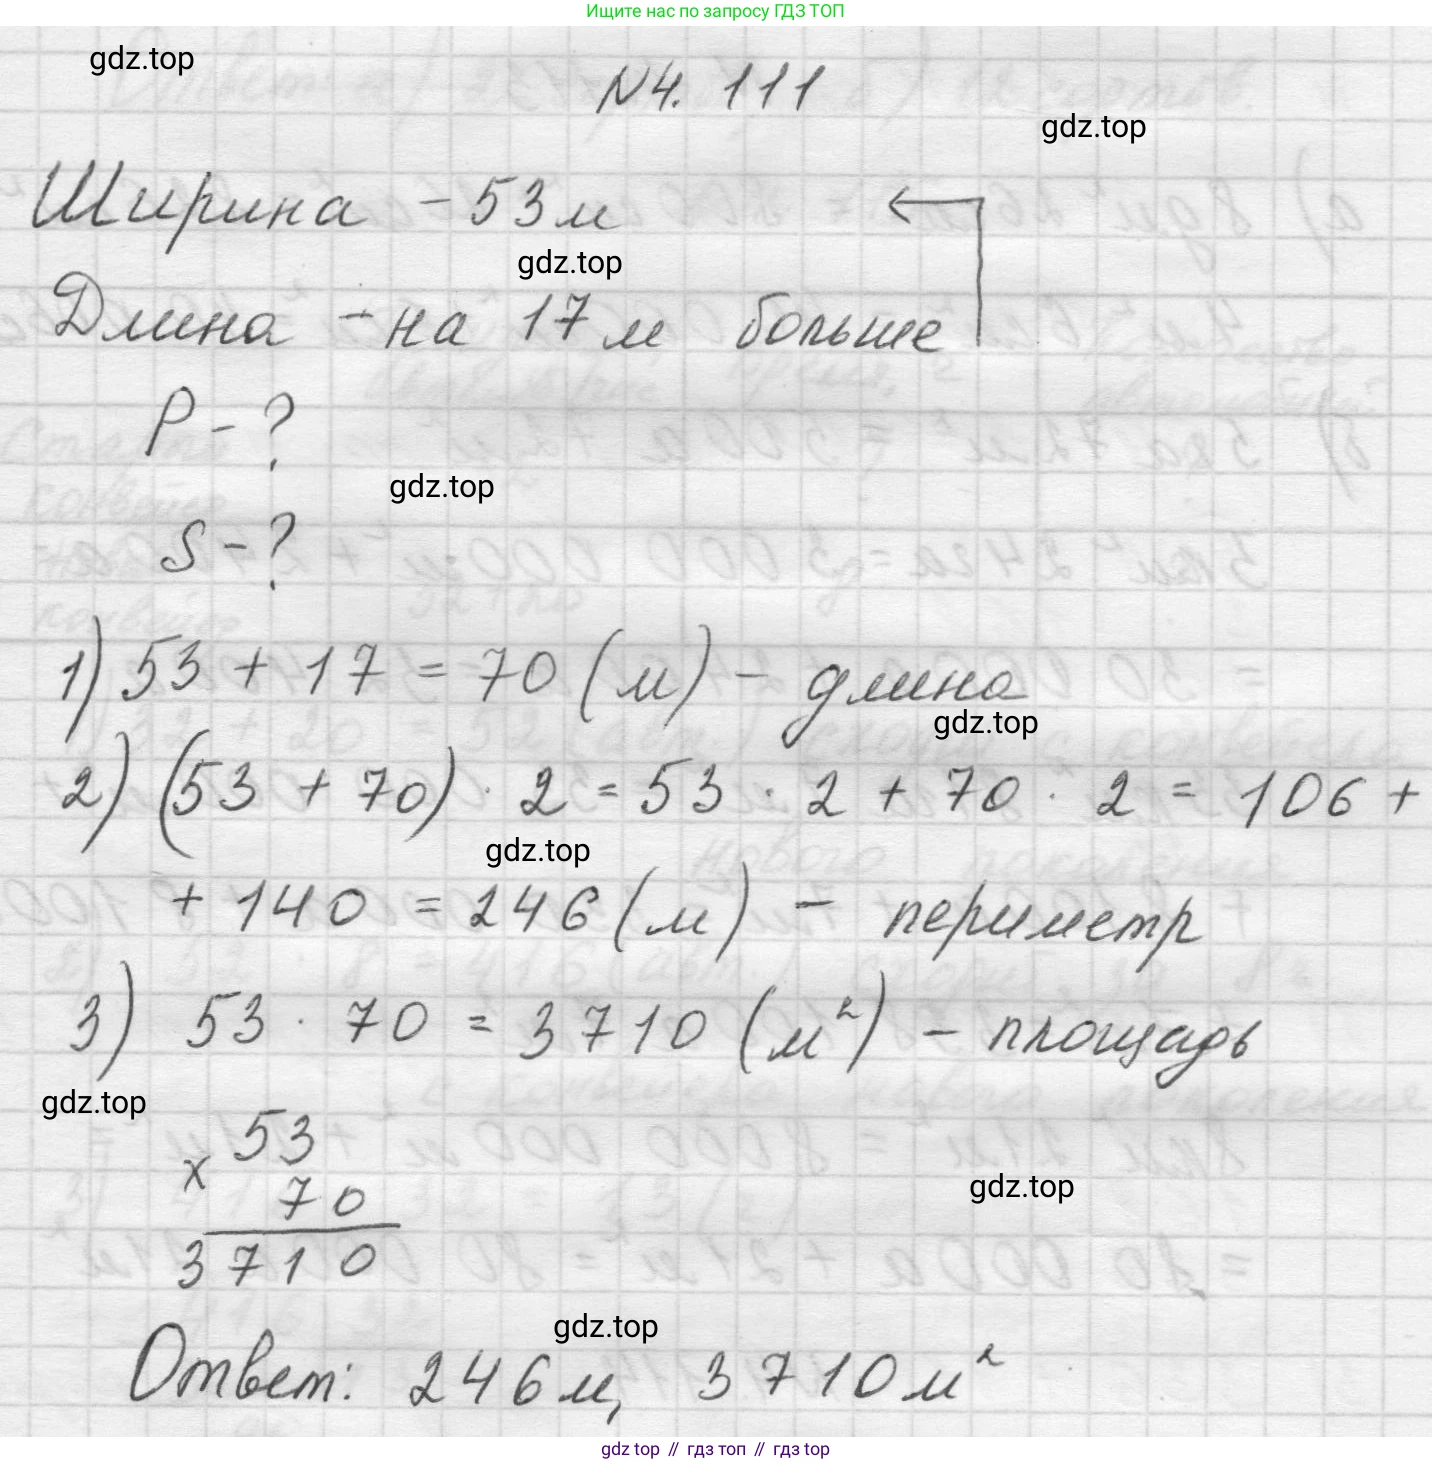 Ищите нас по запросу ГДЗ ТОП
gdz.top
№4. 111
gdz.top
Ширина - 53 м
gdz.top
Длина - на 17 м больше
P - ?
gdz.top
S - ?
1) 53 + 17 = 70 (м) - длина
gdz.top
2) (53 + 70) · 2 = 53 · 2 + 70 · 2 = 106 +
gdz.top
+ 140 = 246 (м) - периметр
3) 53 · 70 = 3710 (м²) - площадь
gdz.top
53
x
70
gdz.top
3710
gdz.top
Ответ: 246 м, 3710 м²
gdz top // гдз топ // gdz.top